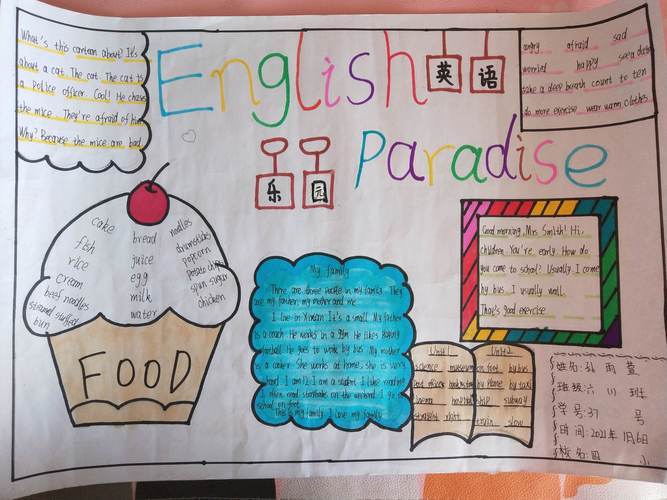 What's this cartoon about? It's
about a cat. The cat. The cat is
a police officer. Cool! He chase
the mice. They're afraid of him
Why? Because the mice are bad.
English
英语
乐园
Paradise
angry afraid sad
worried happy see a doctor
take a deep breath count to ten
do more exercise wear warm clothes
cake bread noodles
fish juice drumsticks
rice egg popcorn
cream milk potato chips
beef noodles water spun sugar
steamed stuffed bun chicken
FOOD
My family
There are three people in my family. They
are my father, my mother and me.
I live in It's a small. My father
is a coach. He works in a gym. He likes
football. He goes to work by bus. My mother
is a She works at home, she is very
I am 12. I am a student. I like reading
I often read storybooks on the weekend. I go
school on foot.
This is my family. I love my family.
Good morning, Mrs Smith! Hi,
children. You're early. How do
you come to school? Usually, I come
by bus. I usually walk.
That's good exercise
Unit1 Unit2
science museum on foot by bus
post office bookstore by plane by taxi
cinema hospital ship subway
straight right train slow
姓名:孙雨萱
班级:六(1)班
学号:37号
时间:2021年1月6日
校名:四小